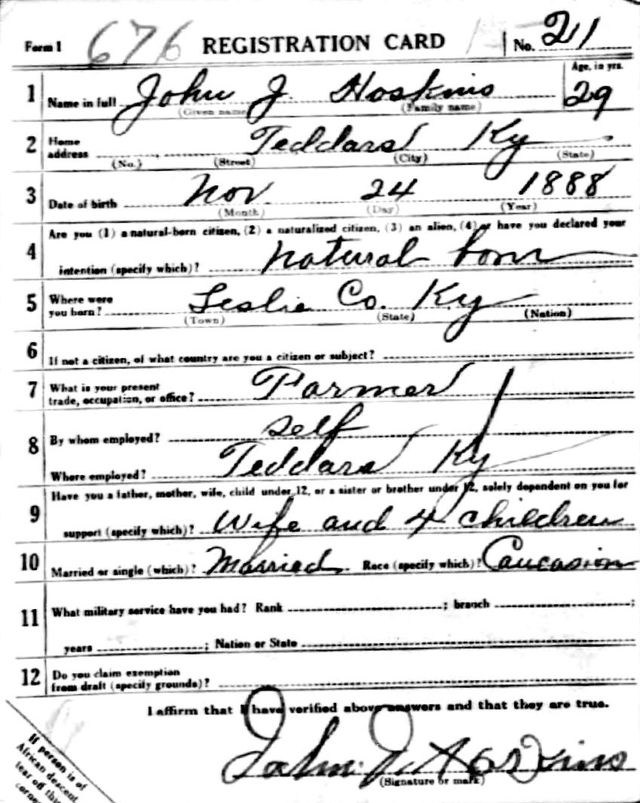 Form 1 676 REGISTRATION CARD No. 21
1 Name in full John J Hoskins Age, in yrs. 29
(Given name) (Family name)
2 Home address Teddars Ky
(No.) (Street) (City) (State)
3 Date of birth Nov 24 1888
(Month) (Day) (Year)
4 Are you (1) a natural-born citizen, (2) a naturalized citizen, (3) an alien, (4) or have you declared your
intention (specify which)? natural born
5 Where were you born? Leslie Co. Ky
(Town) (State) (Nation)
6 If not a citizen, of what country are you a citizen or subject?
7 What is your present trade, occupation, or office? Farmer
8 By whom employed? self
Where employed? Teddars Ky
9 Have you a father, mother, wife, child under 12, or a sister or brother under 12, solely dependent on you for
support (specify which)? Wife and 4 children
10 Married or single (which)? Married Race (specify which)? Caucasion
11 What military service have you had? Rank ; branch ;
years ; Nation or State
12 Do you claim exemption
from draft (specify grounds)?
I affirm that I have verified above answers and that they are true.
John J. Hoskins
(Signature or mark)
If person is of
African descent
tear off this